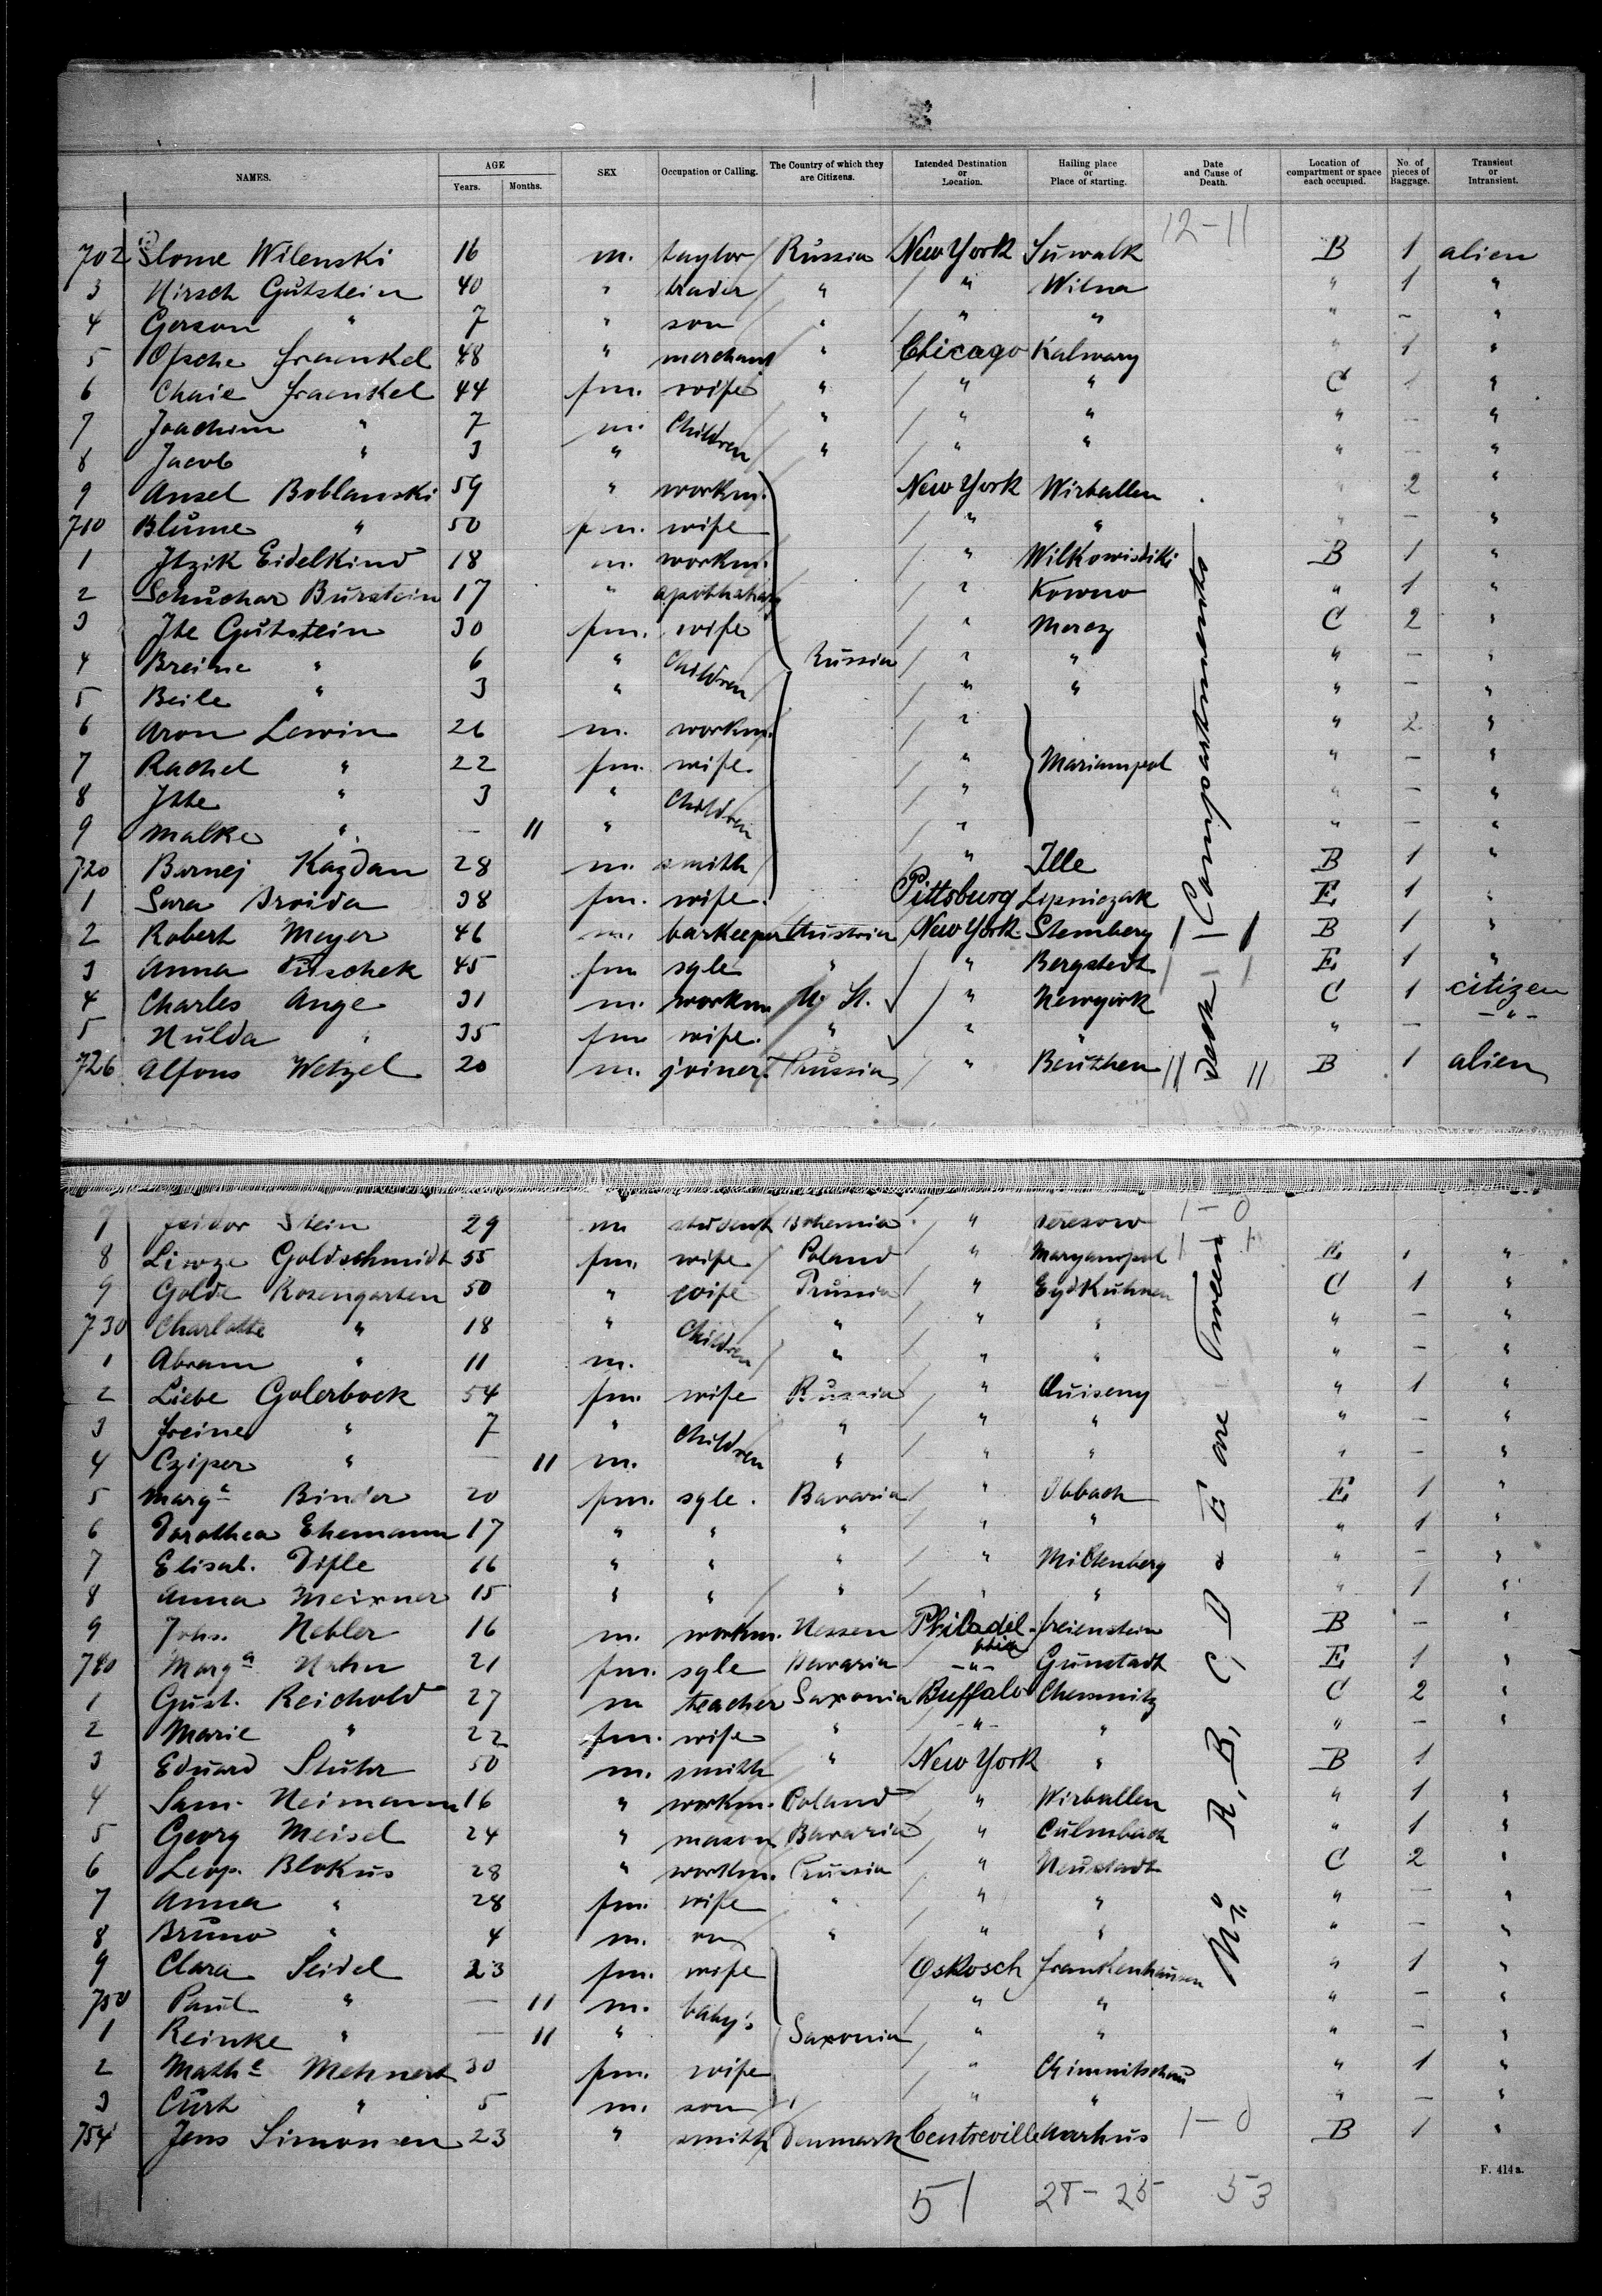 NAMES. AGE Years. Months. SEX Occupation or Calling. The Country of which they are Citizens. Intended Destination or Location. Hailing place or Place of starting. Date and Cause of Death. Location of compartment or space each occupied. No. of pieces of Baggage. Transient or Intransient.
12-11
702 Slome Wilenski 16 m. taylor Russia New York Suwalk B 1 alien
3 Hirsch Gutstein 40 " trader " " Wilna " 1 "
4 Gerson " 7 " son " " " " - "
5 Opsche Fraenkel 48 " merchant " Chicago Kalwary " 1 "
6 Chaie Fraenkel 44 fm. wife " " " C 1 "
7 Joachim " 7 m. Children " " " " - "
8 Jacob " 3 " " " " " - "
9 Ansel Boblanski 59 " workm. New York Wirballen " 2 "
710 Blume " 50 fm. wife " " " - "
1 Itzik Eidelkind 18 m. workm. " B 1 "
2 Schuchar Burstein 17 " " Kowno " 1 "
3 Ite Gutstein 30 fm. wife " Merez C 2 "
4 Breine " 6 " Children Russia " " " - "
5 Beile " 3 " " " " - "
6 Aron Lewin 26 m. workm. " " 2 "
7 Rachel " 22 fm. wife " Mariampol " - "
8 Itte " 3 " Children " " - "
9 Malke " - 11 " " " - "
720 Bernej Kazdan 28 m. smith " Ille B 1 "
1 Sara Broida 38 fm. wife Pittsburg Lipniczak E 1 "
2 Robert Meyer 46 m. barkeeper Austria New York Stemberg B 1 "
3 Anna 45 fm sgle " " Bergstedt E 1 "
4 Charles Ange 31 m. workm U. St. " Newyork C 1 citizen
5 Hulda " 35 fm wife " " " " - -"-
726 Alfons Wetzel 20 m. joiner Prussia " Beuthen B 1 alien
7 Isidor Stein 29 m student Bohemia "
8 Goldschmidt 55 fm. wife Poland " Maryampol E "
9 Golde Rosengarten 50 " wife Prussia " Eydkuhnen C 1 "
730 Charlotte " 18 " Children " " " " - "
1 Abram " 11 m. " " " " - "
2 Liebe Golerbock 54 fm. wife Russia " Quiseny " 1 "
3 Freine " 7 " Children " " " " - "
4 Cziper " - 11 m. " " " " - "
5 Marge Binder 20 fm. sgle. Bavaria " Obbach E 1 "
6 Dorothea Ehemann 17 " " " " " " 1 "
7 Elisab. Difle 16 " " " " Miltenberg " - "
8 Anna Meixner 15 " " " " " " 1 "
9 Johs. Hebler 16 m. workm. Hessen Philadelphia Freienstein B - "
740 Marga Hahn 21 fm. sgle Bavaria -"- Gunstadt E 1 "
1 Gust. Reichold 27 m teacher Saxonia Buffalo Chemnitz C 2 "
2 Marie " 22 fm. wife " -"- " " - "
3 Eduard Stuhr 50 m. smith " New York " B 1
4 Sam. Heimann 16 " workm. Poland " Wirballen " 1 "
5 Georg Meisel 24 " mason Bavaria " Culmbach " 1 "
6 Leop. Blokus 28 " workm. Prussia " Neustadt C 2 "
7 Anna " 28 fm. wife " " " " - "
8 Bruno " 4 m. " " " " - "
9 Clara Seidel 23 fm. wife Oskosch Frankenhausen " 1 "
750 Paul " - 11 m. baby's " " " - "
1 Reinke " - 11 " Saxonia " " " - "
2 Mathe Mehnert 30 fm. wife " Crimmitschau " 1 "
3 Curt " 5 m. son " " " - "
754 Jens Simonsen 23 " smith Denmark Centreville Aarhus 1-0 B 1 "
Nº A, B, C, D & E are Tweendeck Compartments.
F. 414 a.
51 28-25 53